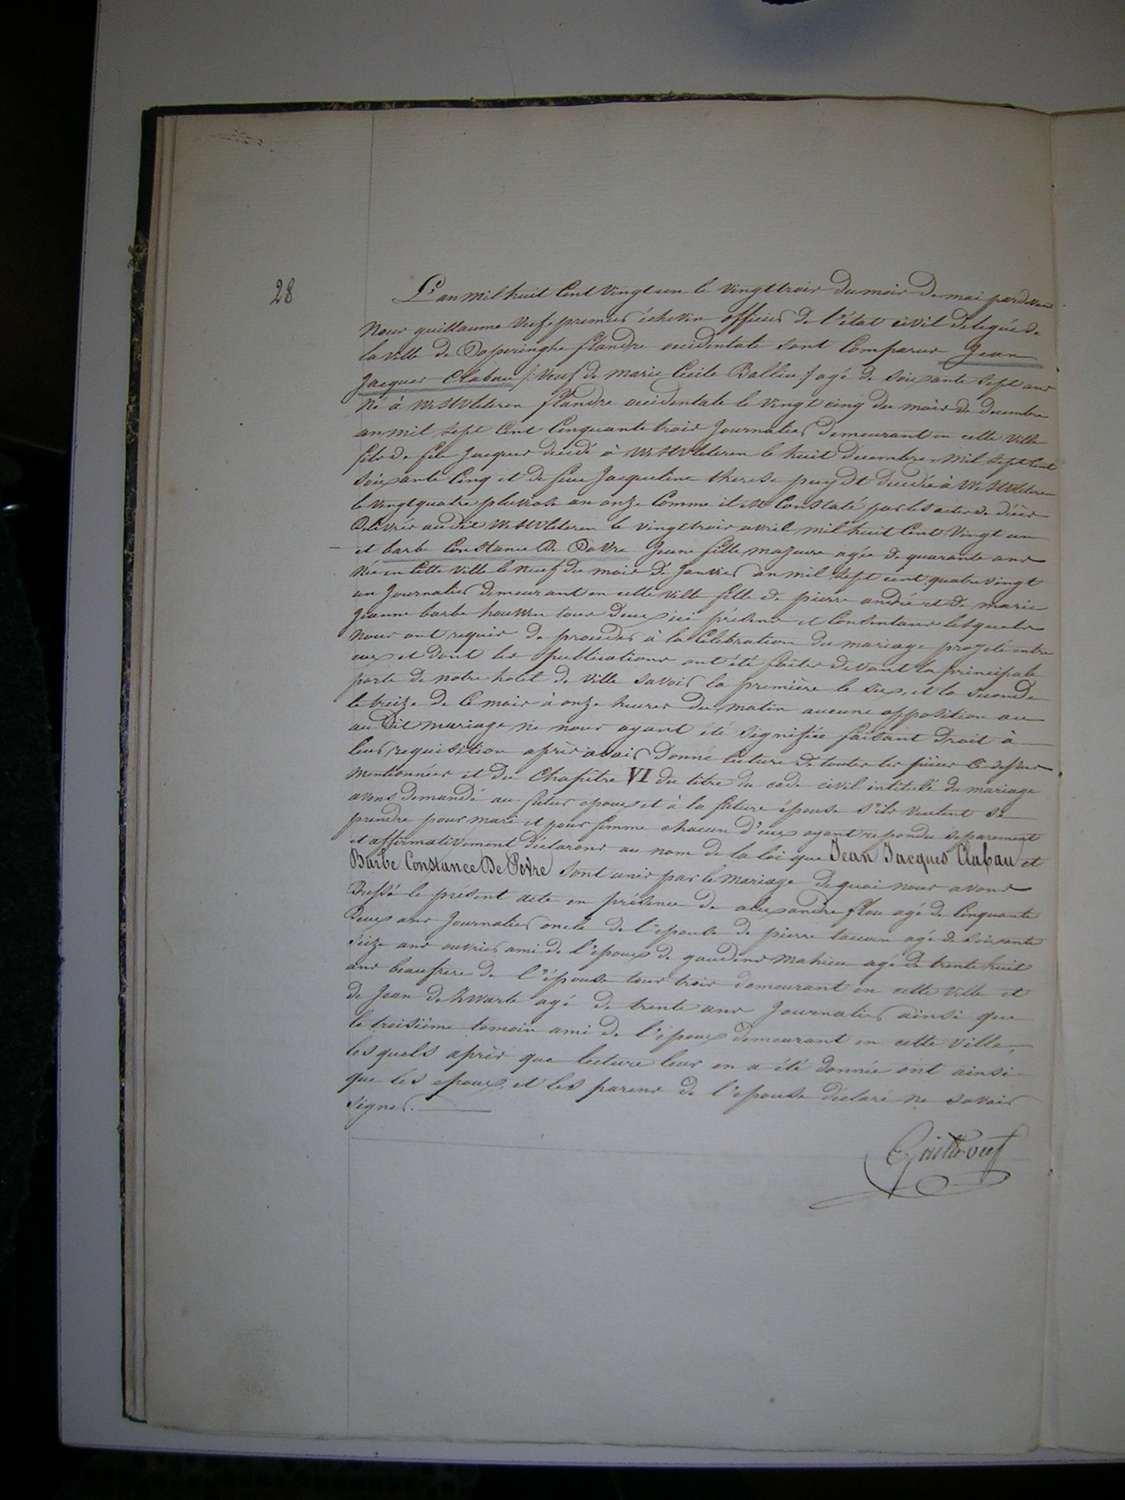 28
L'an mil huit Cent Vingt un le Vingt trois du mois de mai pardevant
Nous guillaume Veuf premier échevin officier de l'état civil delegué de
la Ville de Poperinghe flandre occidentale sont Comparus Jean
Jacques Clabau (Veuf de Marie Cecile Ballieu) agé de soixante sept ans
Né à Westvleteren flandre occidentale le Vingt cinq du mois de decembre
an mil sept Cent Cinquante trois Journalier demeurant en cette Ville
fils de feu Jacques decedé à Westvleteren le huit decembre Mil sept Cent
soixante Cinq et de feue Jacqueline therese puydt decedée à Westvleteren
le Vingt quatre pluviose an onze Comme il est Constaté par les actes de décès
Delivrés audit Westvleteren le Vingt trois avril mil huit Cent Vingt un
et barbe Constance De Povre Jeune fille majeure agée de quarante ans
Née en Cette Ville le Neuf du mois de Janvier an mil sept cent quatre vingt
un Journalier demeurant en cette Ville fille de pierre andré et de marie
Jeanne barbe houwen tous deux ici présens et Contentans lesquels
Nous ont requis de proceder à la Célébration du mariage projeté entre
eux et dont les publications ont été faites devant la principale
porte de notre hotel de Ville savoir la première le six et la seconde
le treize de ce mois à onze heures du matin aucune opposition au
au dit mariage ne nous ayant été signifiée faisant droit à
leur requisition après avoir donné lecture de toutes les pièces ci dessus
mentionnées et du Chapitre VI du titre du code civil intitulé du mariage
avons demandé au futur epoux et à la future épouse s'ils veulent se
prendre pour mari et pour femme chacun d'eux ayant repondu separement
et affirmativement déclarons au nom de la loi que Jean Jacques Clabau et
Barbe Constance De Povre sont unis par le Mariage de quoi nous avons
Dressé le présent acte en présence de alexandre flou agé de Cinquante
Deux ans Journalier oncle de l'epouse de pierre agé de soixante
seize ans ouvrier ami de l'epoux de gaudens Mahieu agé de trente huit
ans beaufrere de l'épouse tous trois demeurant en cette Ville et
de Jean de Zwarte agé de trente ans Journalier ainsi que
le troisième temoin ami de l'époux demeurant en cette Ville,
lesquels après que lecture leur en a été donnée ont ainsi
que les epoux et les parens de l'epouse déclaré ne savoir
signer.